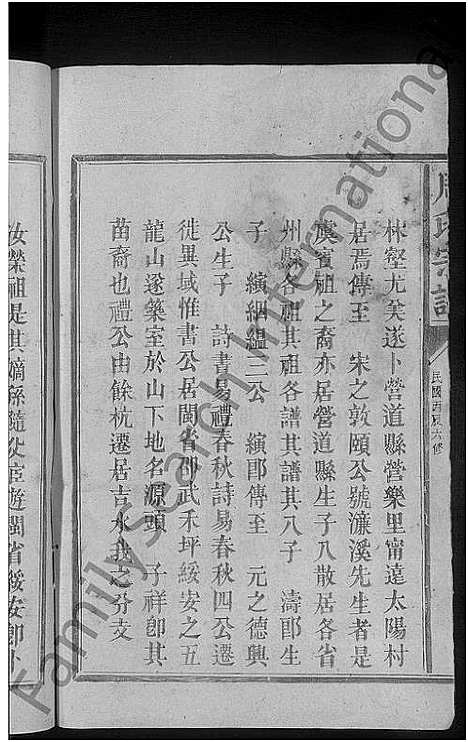 周氏宗譜
民國丙辰六修
林壑尤美遂卜營道縣營樂里甯遠太陽村
居焉傳至 宋之敦頤公號濂溪先生者是
虞賓祖之裔亦居營道縣生子八散居各省
州縣各祖其祖各譜其譜其八子 濤郎生
子 縯絪縕三公 縯郎傳至 元之德興
公生子 詩書易禮春秋詩易春秋四公遷
徙異域惟書公居閩省邵武禾坪綏安之五
龍山遂築室於山下地名源頭 子祥卽其
苗裔也禮公由餘杭遷居吉水我之分支
汝榮祖是其嫡孫隨父宦遊閩省綏安卽卜
FamilySearch International